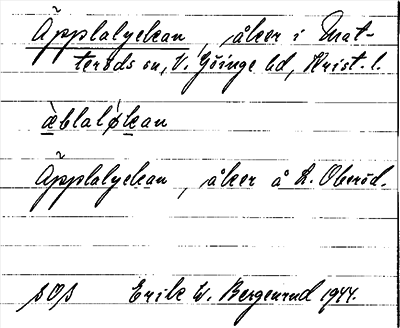 Äpplalyckan, åker i Mat-
teröds sn, V. Göinge hd, Krist. l.
æblaløkan
Äpplalyckan, åker å L. Oberöd.
sOs Erik W. Bergenrud 1944.